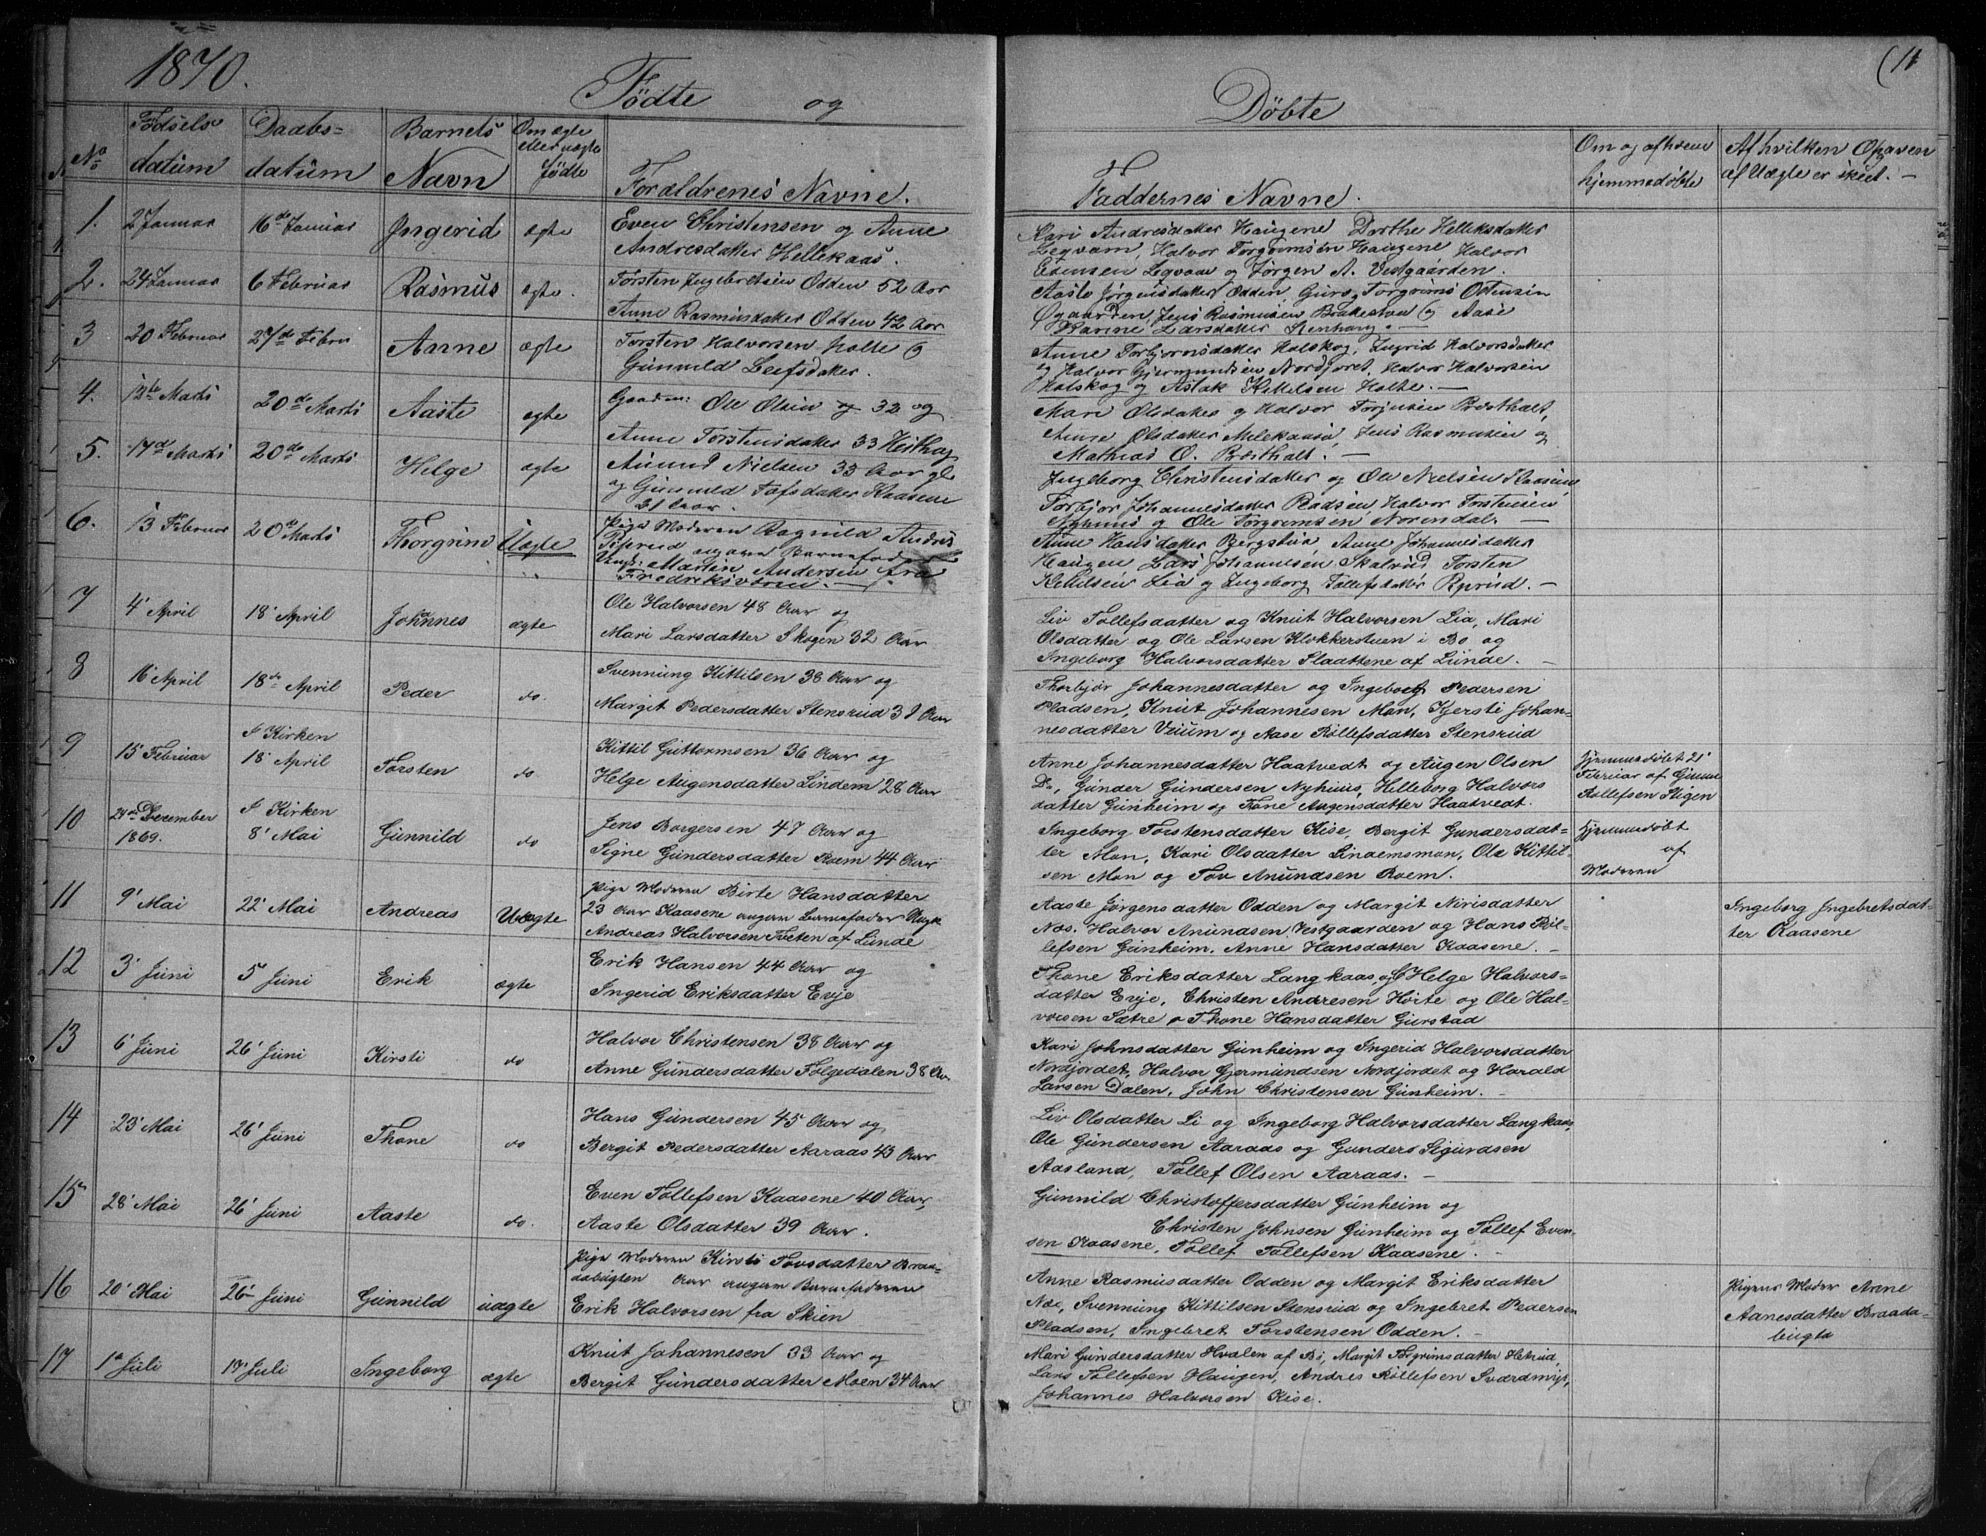 1870.
Fødte og
Døbte
(11
No
Fødsels
datum
Daabs=
datum
Barnets
Navn
Om ægte
eller uægte
fødte
Forældrenes Navne.
Faddernes Navne.
Om og af hvem
hjemmedøbte
Af hvilken Opgaven
af Uægte er skeet. —
1. 2 Januar 16de Januar Ingerid ægte
Even Christensen og Anne
Andresdatter Hellekaas.
Kari Andresdatter Haugene Dorthe Helleksdatter
Legvam, Halvor Torgrimsen Haugene Halvor
Legvam og Jørgen A. Vestgaarden.
2. 24 Januar 6 Februar Rasmus ægte.
Torsten Ingebretsen Odden 52 Aar
Anne Rasmusdatter Odden 42 Aar
Aaste Jørgensdatter Odden, Torgrims
Øgaarden, Jens Rasmusen og Aase
Karine Larsdatter
3 20 Februar 27de Febru Anne ægte
Torsten Halvorsen Holte og
Gunnild Leifsdatter.
Anne Torbjørnsdatter Holskog, Ingrid Halvorsdatter
og Halvor Gjermundsen Nordjoret, Halvor Halvorsen
Holskog og Aslak Kittelsen Holte. —
4. 12te Marts 20de Marts Aaste ægte
Ole Olsen 32 og
Anne Torstensdatter 33
Mari Olsdatter og Halvor Torjusen Brosthalt,
Anne Olsdatter Melekaasa, Jens Rasmusen og
Mathias O. Brosthalt. —
5. 17de Marts 20de Marts Helge ægte
Aunund Nielsen 35 Aar gl
og Gunnild Tofsdatter Kaasene
31 Aar.
Ingeborg Christensdatter og Ole Nielsen Kaasene
Torbjor Johannesdatter Pladsen, Halvor Torstensen
Nyhuus og Ole Torgrimsen Norendal. —
6. 13 Februar 20de Marts Thorgrim Uægte
Pige Moderen Ragnild Andris
angiven Barnefader
Martin Andersen fra
Fredriksværn. —
Anne Hansdatter Bergstua, Anne Johannesdatter
Haugen, Lars Johannesen Skalrud, Torsten
Kittilsen Lia og Ingeborg Tollefsdatter Ryprud. —
7 4' April 18' April Johannes ægte
Ole Halvorsen 48 Aar og
Mari Larsdatter Skogen 32 Aar
Liv Tollefsdatter og Knut Halvorsen Lia, Mari
Olsdatter og Ole Larsen Klokkersteen i Bo og
Ingeborg Halvorsdatter Slaattene af Lunde. —
8 16 April 18de April Peder do.
Svennung Kittilsen 38 Aar og
Margit Pedersdatter Stensrud 38 Aar
Thorbjør Johannesdatter og Ingeborg Pedersen
Pladsen, Knut Johannesen Mon, Kjersti Johan=
nesdatter Vrium og Aase Rollefsdatter Stensrud
9 15 Februar I Kirken
18' April Torsten do
Kittil Guttormsen 36 Aar og
Helge Augensdatter Lindem 28 Aar
Anne Johannesdatter Haatvedt og Augen Olsen
Do, Gunder Gundersen Nyhuus, Helleborg Halvors
datter Gunheim og Tone Augensdatter Haatvedt.
Hjemmedøbt 21'
Februar af Gunn
Rollefsen Stigen
10 29de December
1869.
I Kirken
8' Mai Gunnild do
Jens Borgersen 47 Aar og
Signe Gundersdatter Roem 44 Aar
Ingeborg Torstensdatter Kise, Bergit Gundersdat=
ter Mon, Kari Olsdatter Lindemsmon, Ole Kittil=
sen Mon og Tov Anundsen Roem.
Hjemmedøbt
af
Moderen
11 9' Mai 22' Mai Andreas Uægte
Pige Moderen Birte Hansdatter
23 Aar Kaasene angiven Barnefader Ungk
Andreas Halvorsen Tveten af Lunde
Aaste Jørgensdatter Odden og Margit Nirisdatter
Næs. Halvor Anundsen Vestgaarden og Hans Rol=
lefsen Gunheim, Anne Hansdatter Kaasene. —
Ingeborg Ingebretsdat=
ter Kaasene
12 3' Juni 5' Juni Erik ægte
Erik Hansen 44 Aar og
Ingerid Eriksdatter Evje
Thone Eriksdatter Langkaas, og Helge Halvors=
datter Evje, Christen Andresen Hørte og Ole Hal=
vorsen Sætre o Thone Hansdatter Gurstad
13 6' Juni 26' Juni Kirsti do
Halvor Christensen 38 Aar og
Anne Gundersdatter Folgedalen 38 Aar
Kari Johnsdatter Gunheim og Ingerid Halvorsdatter
Nordjordet, Halvor Gjermundsen Nordjordet og Harald
Larsen Dalen, John Christensen Gunheim. —
14 23' Mai 26' Juni Thone do
Hans Gundersen 45 Aar og
Bergit Pedersdatter Aaraas 43 Aar
Liv Olsdatter Li og Ingeborg Halvorsdatter Langkaas,
Ole Gundersen Aaraas og Gunders Sigurdsen
Aasland, Tollef Olsen Aaraas. —
15 28' Mai 26' Juni Aaste do.
Even Tollefsen Kaasene 40 Aar,
Aaste Olsdatter 39 Aar.
Gunnild Christoffersdatter Gunheim og
Christen Johnsen Gunheim og Tollef Even=
sen Kaasene, Tollef Tollefsen Kaasene. —
16 20' Mai 26' Juni Gunnild uægte
Pige Moderen Kirsti Tovsdatter Braa=
dabugten Aar angiven Barnefaderen
Erik Halvorsen fra Skien
Anne Rasmusdatter Odden og Margit Eriksdatter
Næs, Svennung Kittilsen Stensrud og Ingebret Pedersen
Pladsen, Ingebret Torstensen Odden. —
Pigens Moder Anne
Aanesdatter Braada=
bugta
17 1a Juli 17' Juli Ingeborg ægte
Knut Johannesen 33 Aar og
Bergit Gundersdatter Moen 34 Aar
Mari Gundersdatter Hvalen af Bø, Margit Torgrimsdatter Hetrud,
Lars Tollefsen Haugen, Andres Rollefsen Sværdmyr,
Johannes Halvorsen Kise.